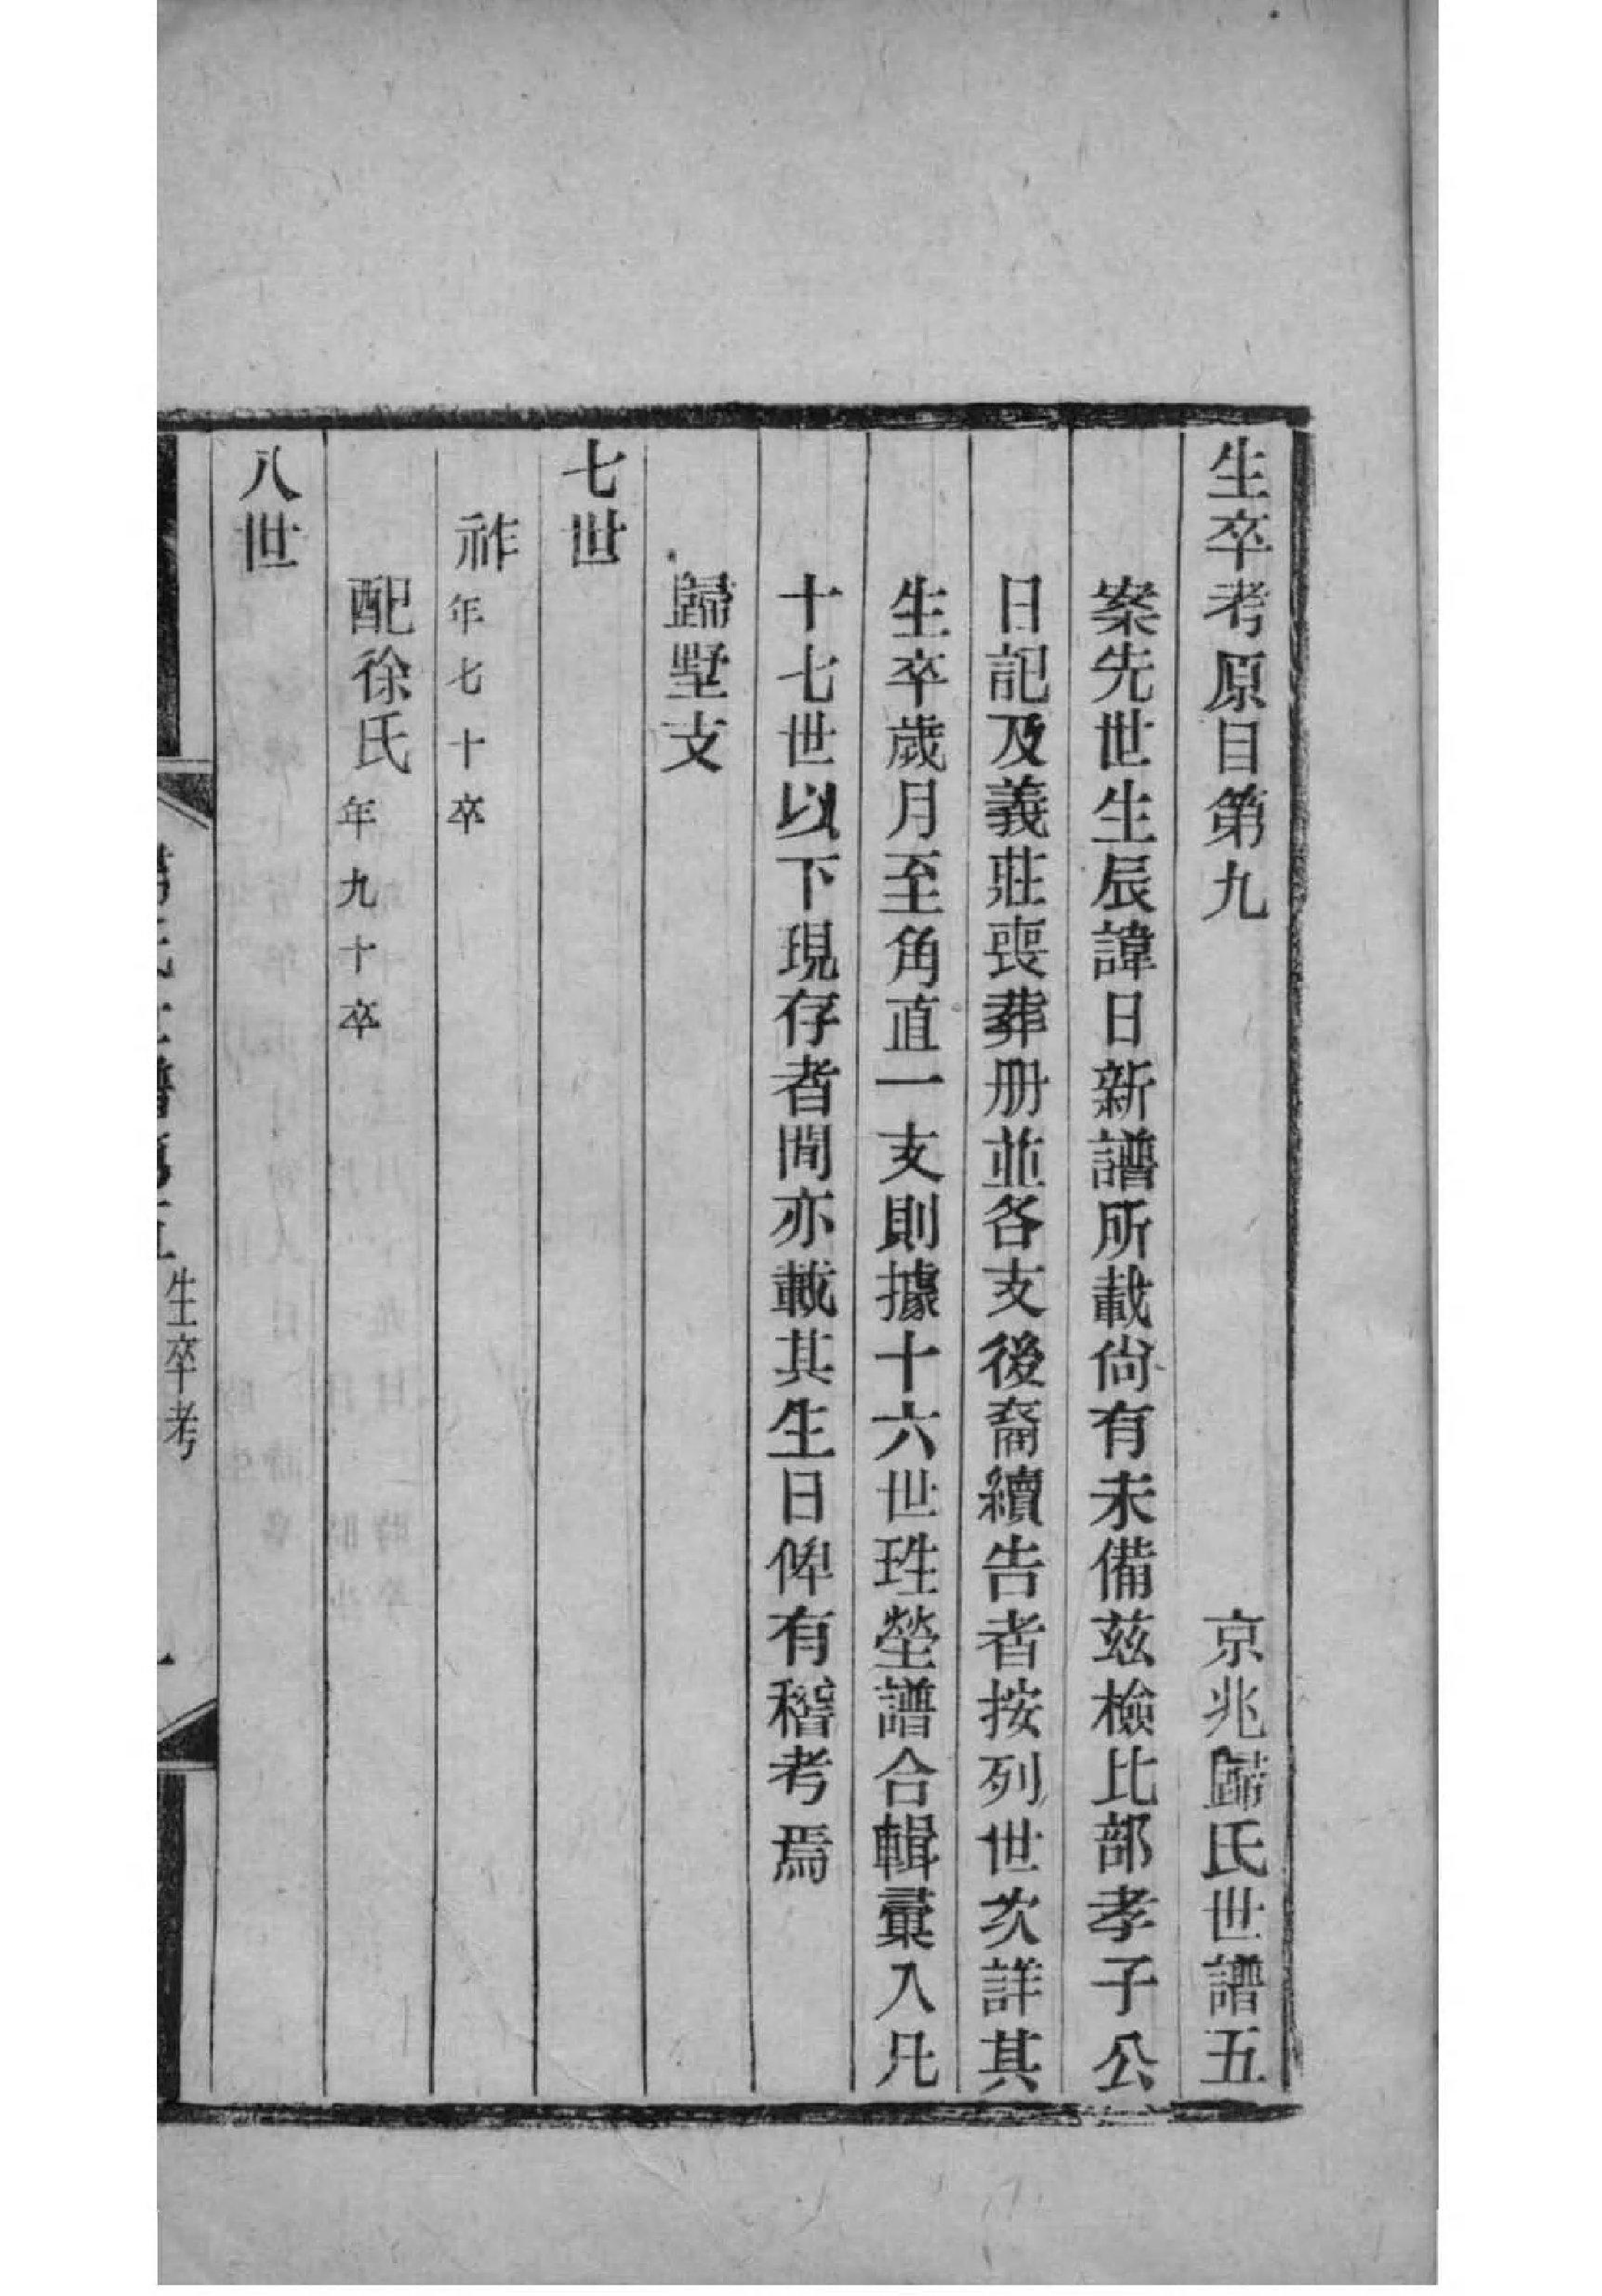 生卒考原目第九　京兆歸氏世譜五
案先世生辰諱日新譜所載尙有未備茲檢比部孝子公
日記及義莊喪葬册並各支後裔續告者按列世次詳其
生卒歲月至角直一支則據十六世珄塋譜合輯彙入凡
十七世以下現存者閒亦載其生日俾有稽考焉
歸墅支
七世
祚年七十卒
配徐氏年九十卒
八世
生卒考
一